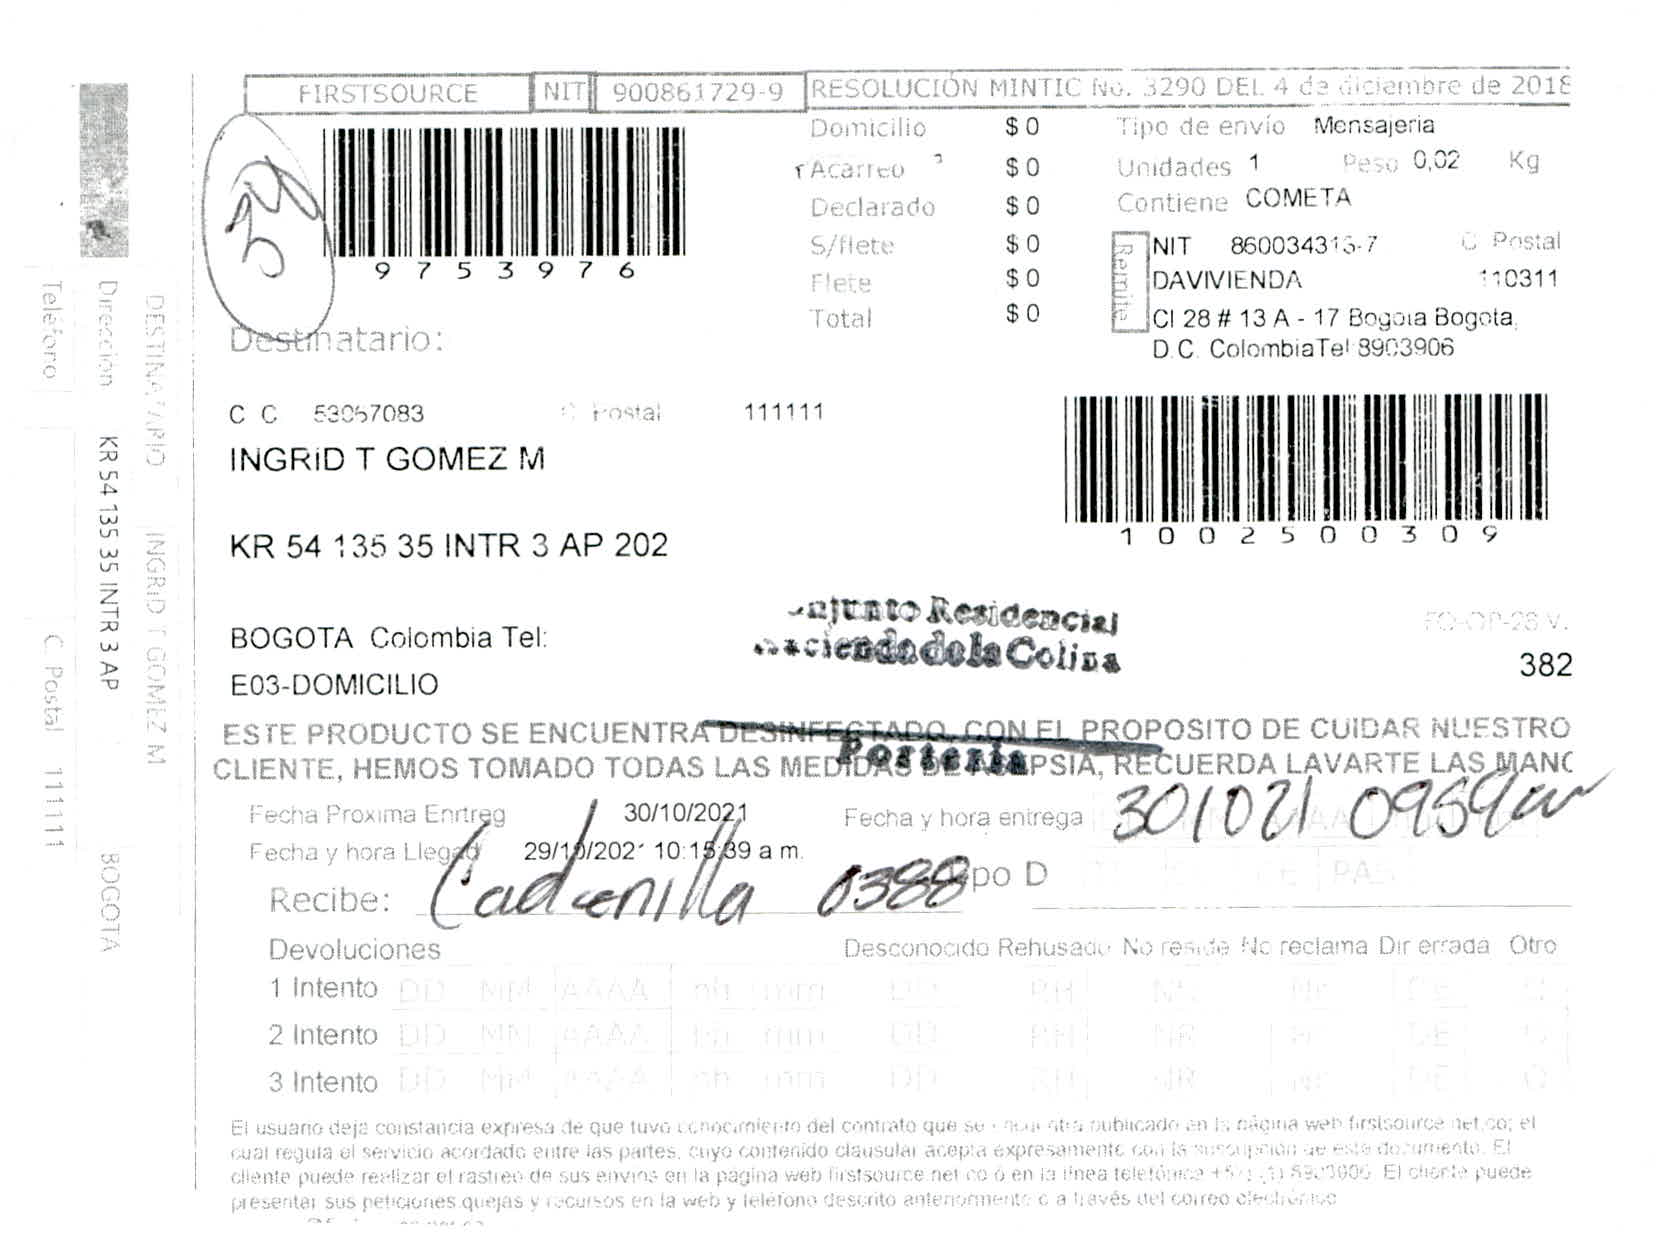 FIRSTSOURCE NIT 900861729-9 RESOLUCIÓN MINTIC No. 3290 DEL 4 de diciembre de 2018
34
9753976
Domicilio $ 0
Acarreo $ 0
Declarado $ 0
S/flete $ 0
Flete $ 0
Total $ 0
Tipo de envío Mensajeria
Unidades 1 Peso 0,02 Kg
Contiene COMETA
Remite
NIT 860034313-7 C Postal
DAVIVIENDA 110311
Cl 28 # 13 A - 17 Bogota Bogota,
D.C. ColombiaTel 8903906
Destinatario:
C C 53067083 C Postal 111111
INGRID T GOMEZ M
1002500309
KR 54 135 35 INTR 3 AP 202
Residencial
Hacienda de la Colina
Porteria
BOGOTA Colombia Tel:
E03-DOMICILIO
FO-OP-28 V.
382
ESTE PRODUCTO SE ENCUENTRA DESINFECTADO, CON EL PROPOSITO DE CUIDAR NUESTRO
CLIENTE, HEMOS TOMADO TODAS LAS MEDIDAS DE PSIA, RECUERDA LAVARTE LAS MANO
Fecha Proxima Enrtreg 30/10/2021 Fecha y hora entrega 30/10/21 0959am
Fecha y hora Llegad 29/10/2021 10:15:39 a m.
Recibe: Cadenilla 0388 po D
Devoluciones Desconocido Rehusado No reside No reclama Dir errada Otro
1 Intento DD MM AAAA hh mm DD RH NR Nr DE O
2 Intento DD MM AAAA hh mm DD RH NR DE O
3 Intento DD MM AAAA hh mm DD RH NR DE O
El usuario deja constancia expresa de que tuvo conocimiento del contrato que se publicado en la página web firstsource.net.co; el
cual regula el servicio acordado entre las partes, cuyo contenido clausular acepta expresamente con la suscripción de este documento. El
cliente puede realizar el rastreo de sus envios en la pagina web firstsource net co ó en la línea telefónica El cliente puede
presentar sus peticiones quejas y recursos en la web y teléfono descrito anteriormente o a través del correo electrónico
DESTINATARIO INGRID T GOMEZ M
Dirección KR 54 135 35 INTR 3 AP BOGOTA
Teléfono C. Postal 111111